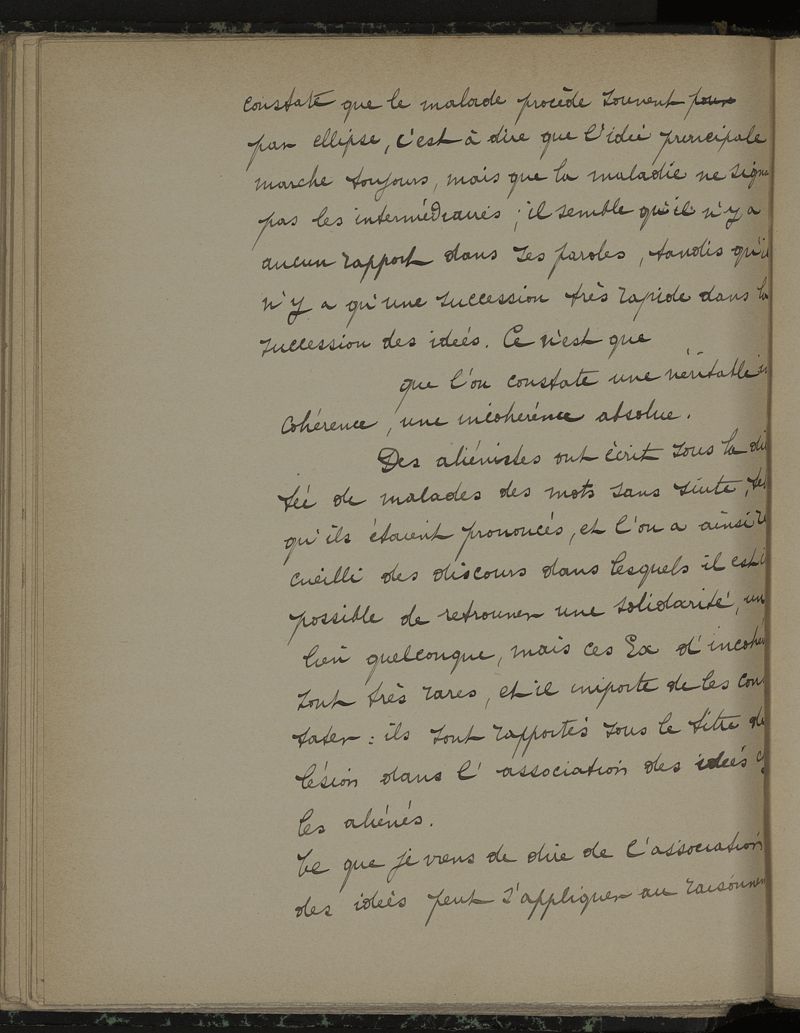 constate que le malade procède souvent pour
par ellipse, c'est à dire que l'idée principale
marche toujours, mais que la maladie ne sign
pas les intermédiaires ; il semble qu'il n'y a
aucun rapport dans ses paroles, tandis qu'il
n'y a qu'une succession très rapide dans la
succession des idées. Ce n'est que
que l'on constate une véritable in
cohérence, une incohérence absolue.
Des aliénistes ont écrit sous la dic
tée de malades des mots sans suite, tels
qu'ils étaient prononcés, et l'on a ainsi re
cueilli des discours dans lesquels il est i
possible de retrouver une solidarité, un
lien quelconque, mais ces Ex d'incohé
sont très rares, et il importe de les cons
tater : ils sont rapportés sous le titre de
lésion dans l'association des idées c
les aliénés.
Ce que je viens de dire de l'association
des idées peut s'appliquer au raisonnem